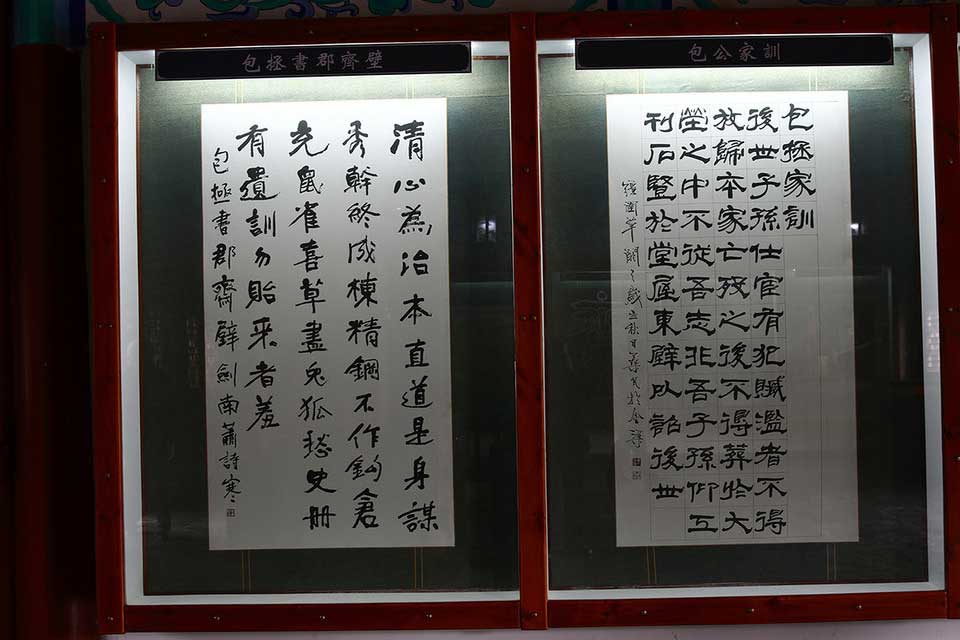 包拯書郡齊壁
清心為治本直道是身謀
秀幹終成棟精鋼不作鈎倉
充鼠雀喜草盡兔狐愁史冊
有遺訓勿貽來者羞
包拯書郡齋壁劍南蕭詩寒
包公家訓
包拯家訓
後世子孫仕宦有犯贓濫者不得
放歸本家亡歿之後不得葬於大
塋之中不從吾志非吾子孫仰工
刊石豎於堂屋東壁以詔後世
歲立秋日